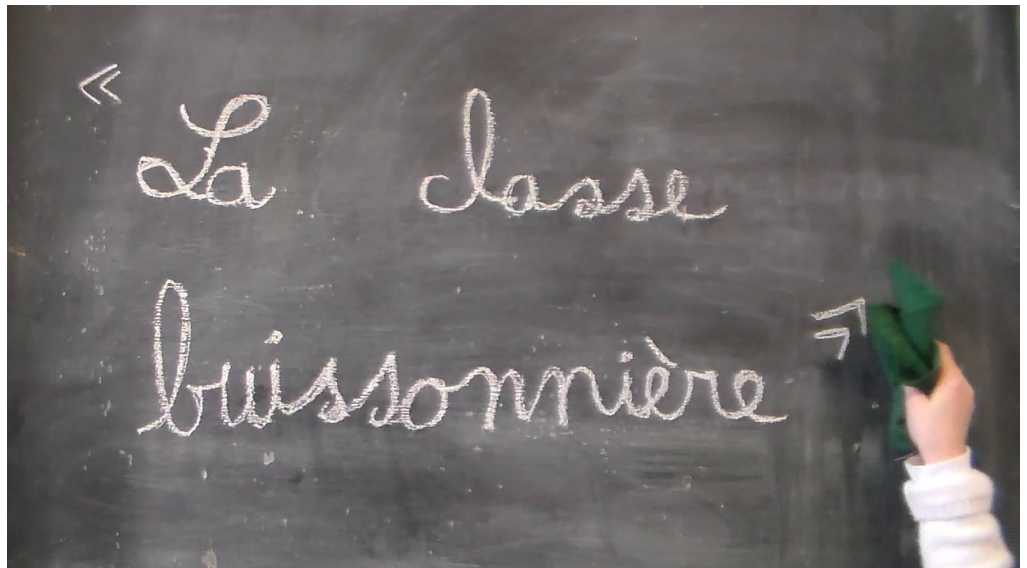 « La classe
buissonnière »